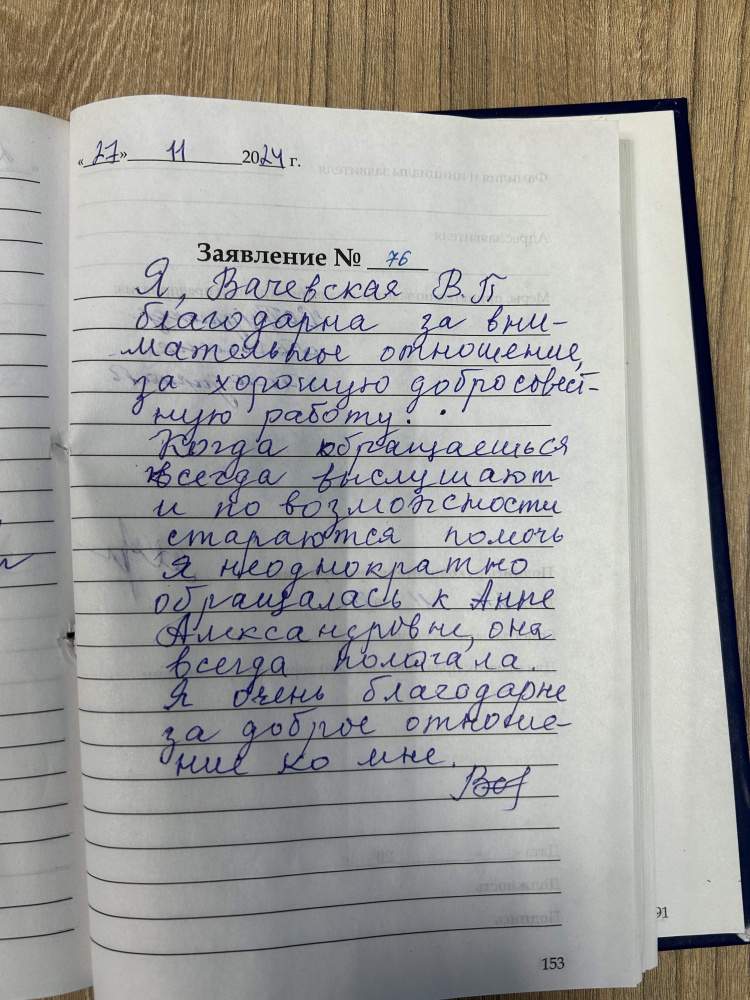 «27» 11 2024 г.
Заявление № 76
Я, Вачевская В.П
благодарна за вни-
мательное отношение,
за хорошую добросовест-
ную работу.
Когда обращаешься
всегда выслушают
и по возможности
стараются помочь
Я неоднократно
обращалась к Анне
Александровне, она
всегда помогала.
Я очень благодарна
за доброе отноше-
ние ко мне.
153
91